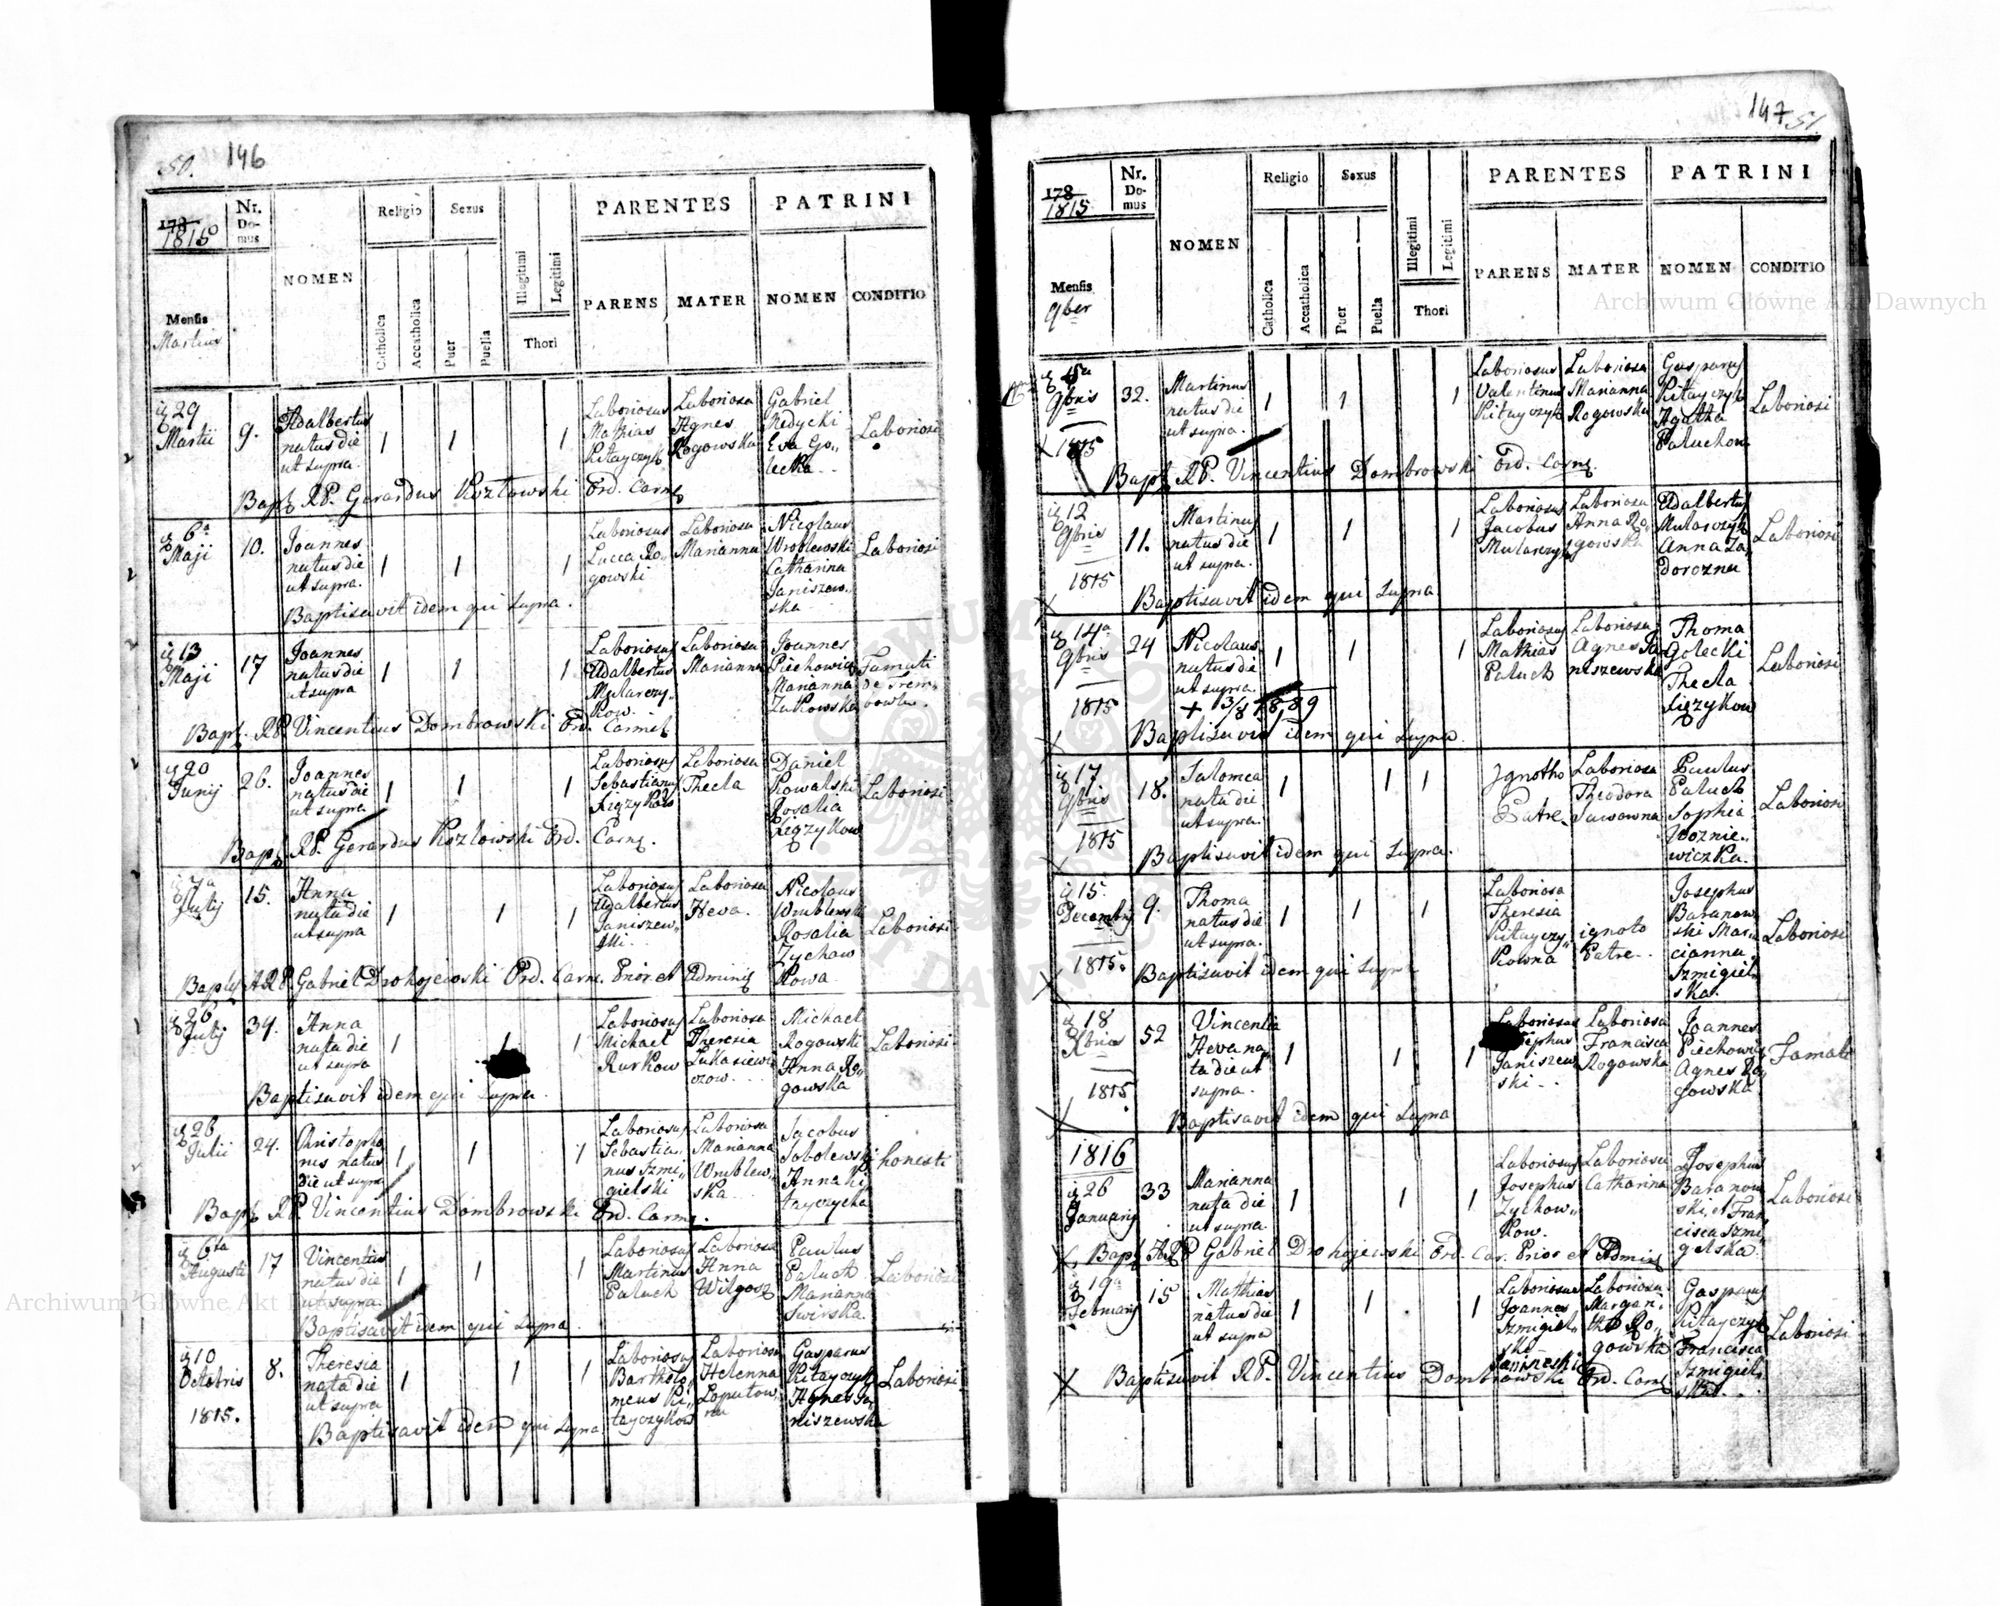 50. 146
178
1815
Nr. Domus
NOMEN
Religio
Sexus
Illegitimi
Legitimi
Thori
PARENTES
PATRINI
Mensis
Martius
Catholica
Accatholica
Puer
Puella
PARENS
MATER
NOMEN
CONDITIO
29 Martii
9.
Adalbertus
natus die
ut supra.
1 1 1
Laboriosus
Mathias
Kitayczyk
Laboriosa
Agnes
Rogowska
Gabriel
Kedycki
Eva Go„
lecka
Laboriosi
Bapt. RP. Gerardus Kozlowski Ord. Carm.
6a Maji
10.
Joannes
natus die
ut supra.
1 1 1
Laboriosus
Lucca Ro„
gowski
Laboriosa
Marianna
Nicolaus
Wroblewski
Catharina
Janiszew„
ska
Laboriosi
Baptisavit idem qui supra.
13 Maji
17
Joannes
natus die
ut supra
1 1 1
Laboriosus
Adalbertus
Mularczy„
kow.
Laboriosa
Marianna
Joannes
Piechowicz
Marianna
Zukowska
Famuli
de Trem„
bowla.
Bapt. RP. Vincentius Dombrowski Ord. Carmel.
20 Junij
26.
Joannes
natus die
ut supra
1 1 1
Laboriosus
Sebastianus
Laboriosa
Thecla
Daniel
Kowalski
Rosalia
Laboriosi
Bapt. RP. Gerardus Kozlowski Ord. Carm.
7a Julij
15.
Anna
nata die
ut supra
1 1 1
Laboriosus
Adalbertus
Janiszew„
ski
Laboriosa
Heva.
Nicolaus
Wrublewski
Rosalia
Zychow
kowa
Laboriosi
Bapt. ARP. Gabriel Drohojewski Ord. Carm. Prior et Adminis.
26 Julij
34.
Anna
nata die
ut supra
1 1 1
Laboriosus
Michael
Kurkow
Laboriosa
Theresia
Lukasiewi„
czow.
Michael
Rogowski
Anna Ro„
gowska
Laboriosi
Baptisavit idem qui supra.
26 Julii
24.
Christopho
rus natus
die ut supra
1 1 1
Laboriosus
Sebastia„
nus Szmi„
gielski
Laboriosa
Marianna
Wrublew„
ska
Jacobus
Sobolewski
Anna Ki„
tayczycha
honesti
Bapt. RP. Vincentius Dombrowski Ord. Carm.
6ta Augusti
17
Vincentius
natus die
ut supra.
1 1 1
Laboriosus
Martinus
Paluch
Laboriosa
Anna
Wilgosz
Paulus
Paluch
Marianna
Swirska
Laboriosi
Baptisavit idem qui supra.
10 Octobris
1815.
8.
Theresia
nata die
ut supra
1 1 1
Laboriosus
Bartholo„
meus Ki„
tayczykow
Laboriosa
Helenna
Loputow„
na
Gasparus
Kitayczyk
Agnes Ja„
niszewska
Laboriosi
Baptisavit idem qui supra
147 51.
178
1815
Nr. Domus
NOMEN
Religio
Sexus
Illegitimi
Legitimi
Thori
PARENTES
PATRINI
Mensis
9ber
Catholica
Accatholica
Puer
Puella
PARENS
MATER
NOMEN
CONDITIO
9bris
1815
32.
Martinus
natus die
ut supra.
1 1 1
Laboriosus
Valentinus
Kitayczyk
Laboriosa
Marianna
Rogowska
Gasparus
Kitayczyk
Agatha
Paluchow
Laboriosi
Bapt. RP. Vincentius Dombrowski Ord. Carm.
12 9bris
1815
11.
Martinus
natus die
ut supra.
1 1 1
Laboriosus
Jacobus
Mularczyk
Laboriosa
Anna Ro„
gowska
Adalbertus
Mularczyk
Anna Za„
dorozna
Laboriosi
Baptisavit idem qui supra
14a 9bris
1815
24
Nicolaus
natus die
ut supra
+ 3/8 1889
1 1 1
Laboriosus
Mathias
Paluch
Laboriosa
Agnes Ja„
niszewska
Thoma
Golecki
Thecla
Laboriosi
Baptisavit idem qui supra.
17 9bris
1815
18.
Salomea
nata die
ut supra.
1 1 1
Ignotho
Patre.
Laboriosa
Theodora
Sawowna
Paulus
Paluch
Sophia
Woznie„
wiczka.
Laboriosi
Baptisavit idem qui supra.
15. Decembris
1815.
9.
Thoma
natus die
ut supra.
1 1 1
Laboriosa
Theresia
Kitayczy„
kowna
ignoto
Patre
Josephus
Baranow
ski Mar„
cianna
Szmigiel„
ska.
Laboriosi
Baptisavit idem qui supra
18 Xbris
1815.
52
Vincentia
Heva na„
ta die ut
supra.
1 1 1
Laboriosus
Josephus
Janiszew
ski
Laboriosa
Francisca
Rogowska
Joannes
Piechowicz
Agnes Ro„
gowska
Famali
Baptisavit idem qui supra
1816
26 Januarij
33
Marianna
nata die
ut supra.
1 1 1
Laboriosus
Josephus
Zychow„
kow.
Laboriosa
Catharina
Josephus
Baranow
ski, et Fran
cisca Szmi„
gelska
Laboriosi
Bapt. ARP Gabriel Drohojewski Ord. Car. Prior et Adminis.
19a Februarij
15
Mathias
natus die
ut supra
1 1 1
Laboriosus
Joannes
Szmigiel„
ski
Laboriosa
Margari„
tha Ro„
gowska
Gasparus
Kitayczyk
Francisca
Szmigiel„
ska
Laboriosi
Baptisavit RP. Vincentius Dombrowski Ord. Carm.
Archiwum Główne Akt Dawnych